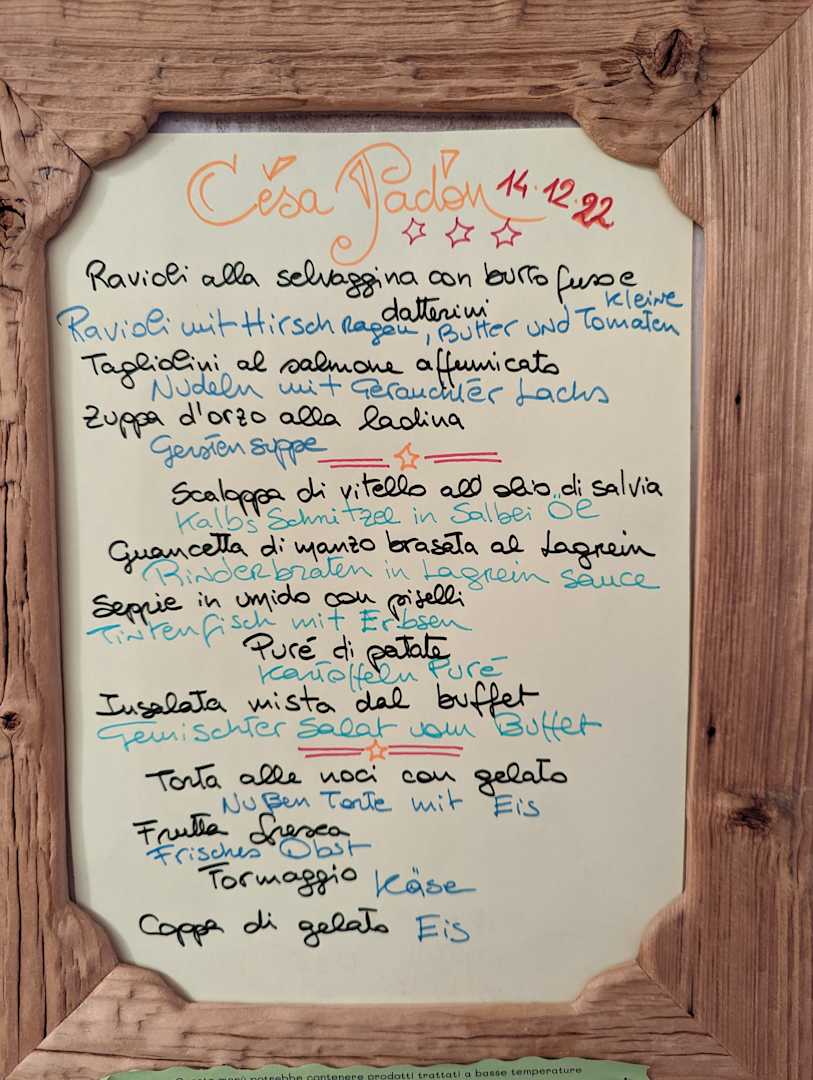 Césa Padón 14.12.22
Ravioli alla selvaggina con burro fuso e
datterini
Ravioli mit Hirsch Ragou, Butter und kleine Tomaten
Tagliolini al salmone affumicato
Nudeln mit Gerauchter Lachs
Zuppa d'orzo alla ladina
Gerstensuppe
Scaloppa di vitello all'olio di salvia
Kalbs Schnitzel in Salbei Öl
Guancetta di manzo brasata al Lagrein
Rinderbraten in Lagrein sauce
Seppie in umido con piselli
Tintenfisch mit Erbsen
Puré di patate
Kartoffeln Puré
Insalata mista dal buffet
Gemischter Salat vom Buffet
Torta alle noci con gelato
Nußen Torte mit Eis
Frutta fresca
Frisches Obst
Formaggio Käse
Coppa di gelato Eis
Questo menù potrebbe contenere prodotti trattati a basse temperature